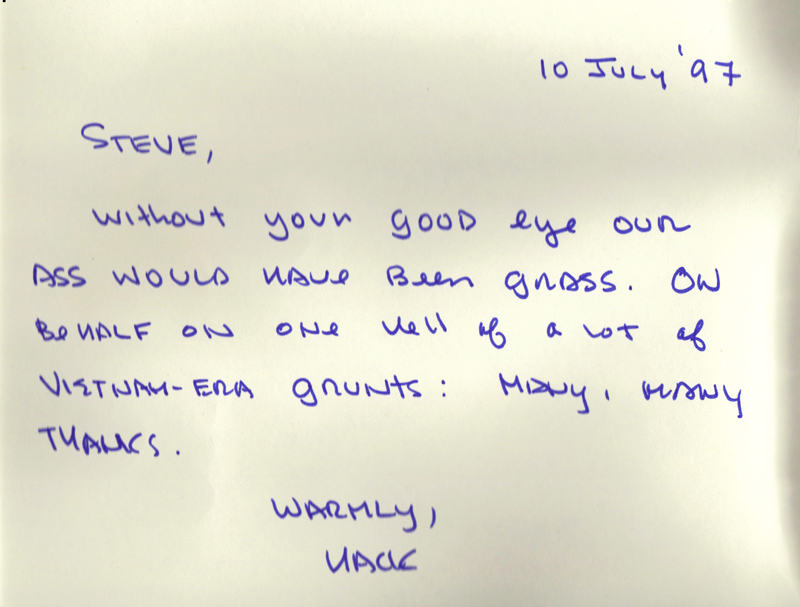 10 JULY '97
STEVE,
without your GOOD eye OUR
ASS WOULD HAVE BEEN GRASS. ON
BEHALF ON ONE Hell of a LOT of
VIETNAM-ERA GRUNTS: MANY, MANY
THANKS.
WARMLY,
HACK